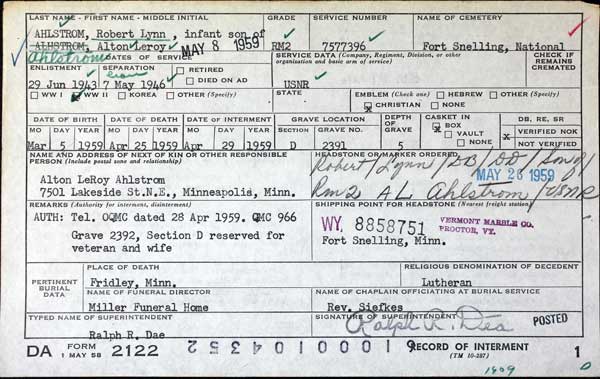 LAST NAME - FIRST NAME - MIDDLE INITIAL
GRADE
SERVICE NUMBER
NAME OF CEMETERY
AHLSTROM, Robert Lynn , infant son of
ALHSTROM, Alton Leroy
MAY 8 1959
RM2
7577396
Fort Snelling, National
Ahlstrom
DATES OF SERVICE
SERVICE DATA (Company, Regiment, Division, or other organization and basic arm of service)
CHECK IF REMAINS CREMATED
ENLISTMENT
SEPARATION
RETIRED
DIED ON AD
29 Jun 1943
7 May 1946
USNR
WW I
WW II
KOREA
OTHER (Specify)
STATE
EMBLEM (Check one)
HEBREW
OTHER (Specify)
x CHRISTIAN
NONE
DATE OF BIRTH
DATE OF DEATH
DATE OF INTERMENT
GRAVE LOCATION
DEPTH OF GRAVE
CASKET IN
DB, RE, SR
MO DAY YEAR MO DAY YEAR MO DAY YEAR SECTION GRAVE NO.
x BOX
VAULT
NONE
x VERIFIED NOK
NOT VERIFIED
Mar 5 1959 Apr 25 1959 Apr 29 1959 D 2391 5
NAME AND ADDRESS OF NEXT OF KIN OR OTHER RESPONSIBLE PERSON (Include postal zone and relationship)
HEADSTONE OR MARKER ORDERED
Robert/Lynn/DB/DD/Son of
MAY 26 1959
Alton LeRoy Ahlstrom
7501 Lakeside St.N.E., Minneapolis, Minn.
Rm2 A L Ahlstrom/USNR
REMARKS (Authority for interment, disinterment)
SHIPPING POINT FOR HEADSTONE (Nearest freight station)
AUTH: Tel. OQMC dated 28 Apr 1959. QMC 966
WY. 8858751
VERMONT MARBLE CO.
PROCTOR, VT.
Grave 2392, Section D reserved for
veteran and wife
Fort Snelling, Minn.
PERTINENT BURIAL DATA
PLACE OF DEATH
RELIGIOUS DENOMINATION OF DECEDENT
Fridley, Minn.
Lutheran
NAME OF FUNERAL DIRECTOR
NAME OF CHAPLAIN OFFICIATING AT BURIAL SERVICE
Miller Funeral Home
Rev. Siefkes
TYPED NAME OF SUPERINTENDENT
SIGNATURE OF SUPERINTENDENT
Ralph R. Dae
Ralph R. Dea
POSTED
DA FORM 1 MAY 58 2122
RECORD OF INTERMENT
(TM 10-287)
1
1809